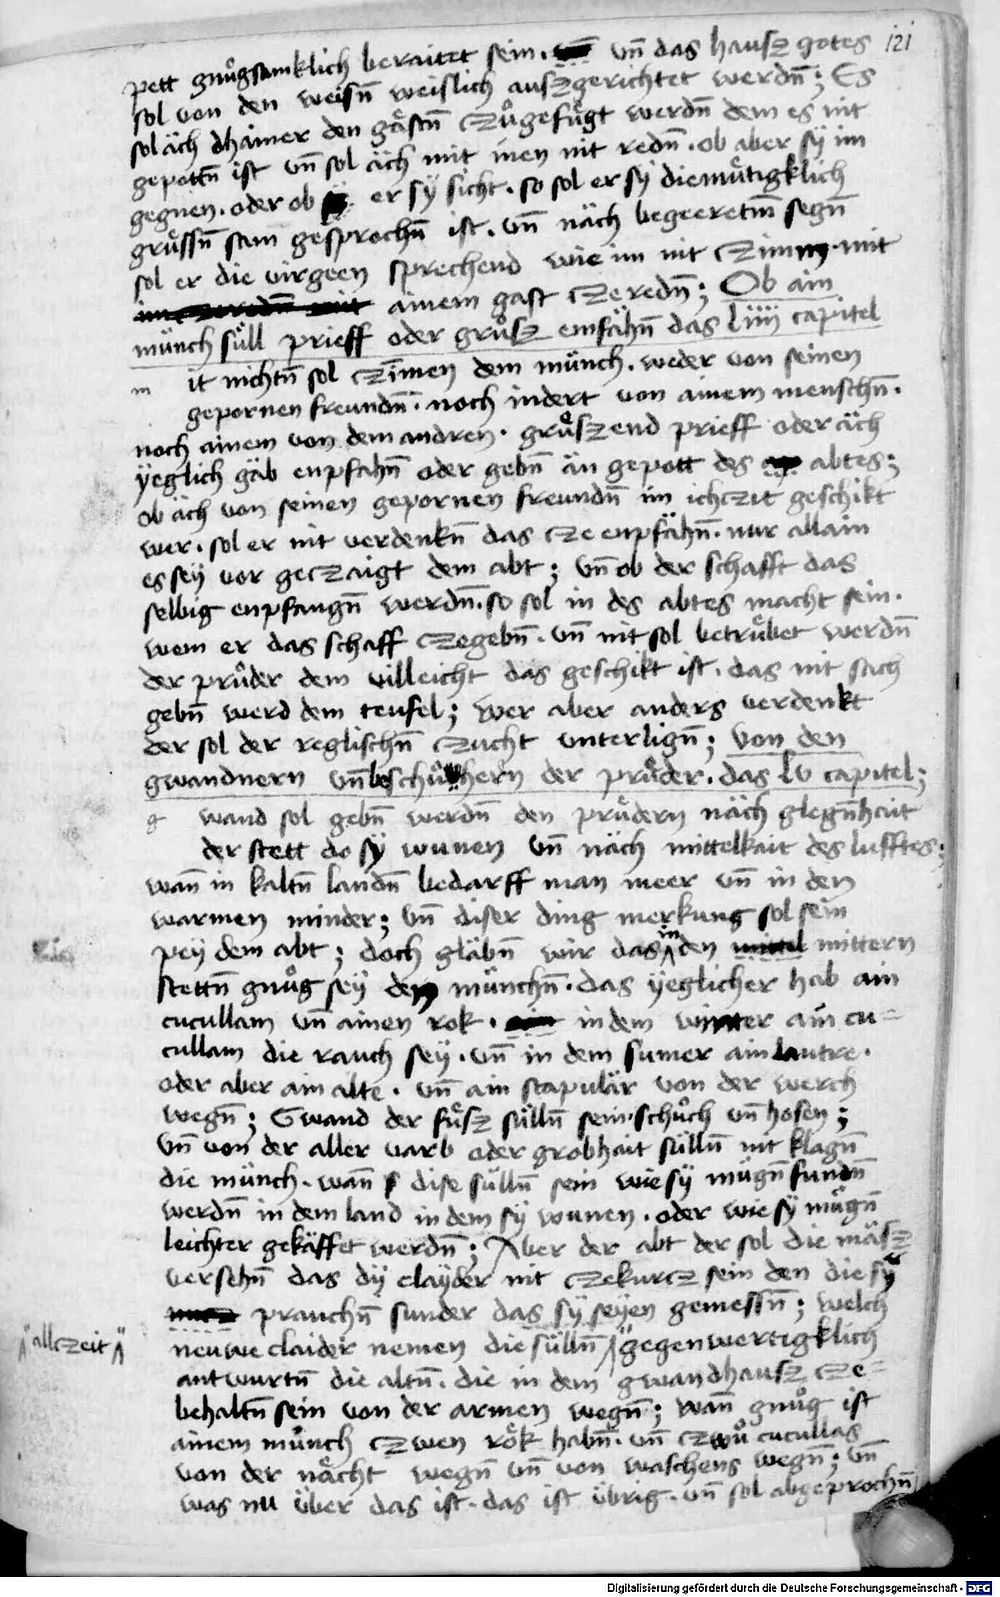 121
pett gnůgsamklich beraitet sein. vn̄ das hausz gotes
sol von den weisn̄ weislich auszgerichtet werdn̄; Es
sol äch dhainer den gästn̄ czůgefůgt werdn̄ dem es nit
gepottn̄ ist vn̄ sol äch mit inen nit redn̄. ob aber sy im
gegnen. oder ob er sy sicht. so sol er sy diemůtigklich
grůssn̄ sam gesprochn̄ ist. vn̄ näch begeeretm̄ segn̄
sol er die virgeen sprechend wie im nit czimm. mit
ainem gast czeredn̄; Ob ain
münch süll prieff oder grůsz emfähn̄ das liiii capitel
m it nichtn̄ sol czīmen dem münch. weder von seinen
gepornen freundn̄. noch indert von ainem menschn̄.
noch ainem von dem andren. grůszend prieff oder äch
yeglich gäb enpfahn̄ oder gebn̄ än gepott des abtes;
ob äch von seinen gepornen freundn̄ im ichczit geschikt
wer. sol er nit verdenkn̄ das cze enpfähn̄. nur allain
es sey vor geczaigt dem abt; vn̄ ob der schafft das
selbig enpfangn̄ werdn̄. so sol in des abtes macht sein.
wem er das schaff czegebn̄. vn̄ nit sol betrůbet werdn̄
der průder dem villeicht das geschikt ist. das nit sach
gebn̄ werd dem teufel; wer aber anders verdenkt
der sol der reglischn̄ czucht unterlign̄; Von den
gwandnern vn̄ beschůchern der průder. das lv capitel;
g wand sol gebn̄ werdn̄ den průdern näch glegn̄hait
der stett do sy wunen vn̄ näch mittelkait des lufftes;
wan̄ in kaltn̄ landn̄ bedarff man meer vn̄ in den
warmen minder; vn̄ diser ding merkung sol sein
pey dem abt; doch gläbn̄ wir das in den mittern
stettn̄ gnůg sey dem münchn̄. das yeglicher hab ain
cucullam vn̄ ainen rok. in dem winter ain cu=
cullam die rauch sey. vn̄ in dem sumer ain lautre.
oder aber ain alte. vn̄ ain scapulär von der werch
wegn̄; Gwand der fůsz sülln̄ sein. schůch vn̄ hosen;
vn̄ von der aller varb oder grobhait sülln̄ nit klagn̄
die münch. wan̄ dise sülln̄ sein wie sy mügn̄ fundn̄
werdn̄ in dem land in dem sy wunen. oder wie sy můgn̄
leichter gekäffet werdn̄; Aber der abt der sol die mäsz
versehn̄ das dy clayder nit czekurcz sein den die sy
prauchn̄ sunder das sy seyen gemessn̄; welch
neuwe claider nemen die sülln̄ gegenwertigklich
allczeit
antwurtn̄ die altn̄. die in dem gwandhausz cze=
behaltn̄ sein von der armen wegn̄; wan̄ gnůg ist
ainem münch czwen rök habn̄. vn̄ czwů cucullas
von der nächt wegn̄ vn̄ von waschens wegn̄; vn̄
was nu über das ist. das ist übrig. vn̄ sol abgeprochn̄
Digitalisierung gefördert durch die Deutsche Forschungsgemeinschaft - DFG